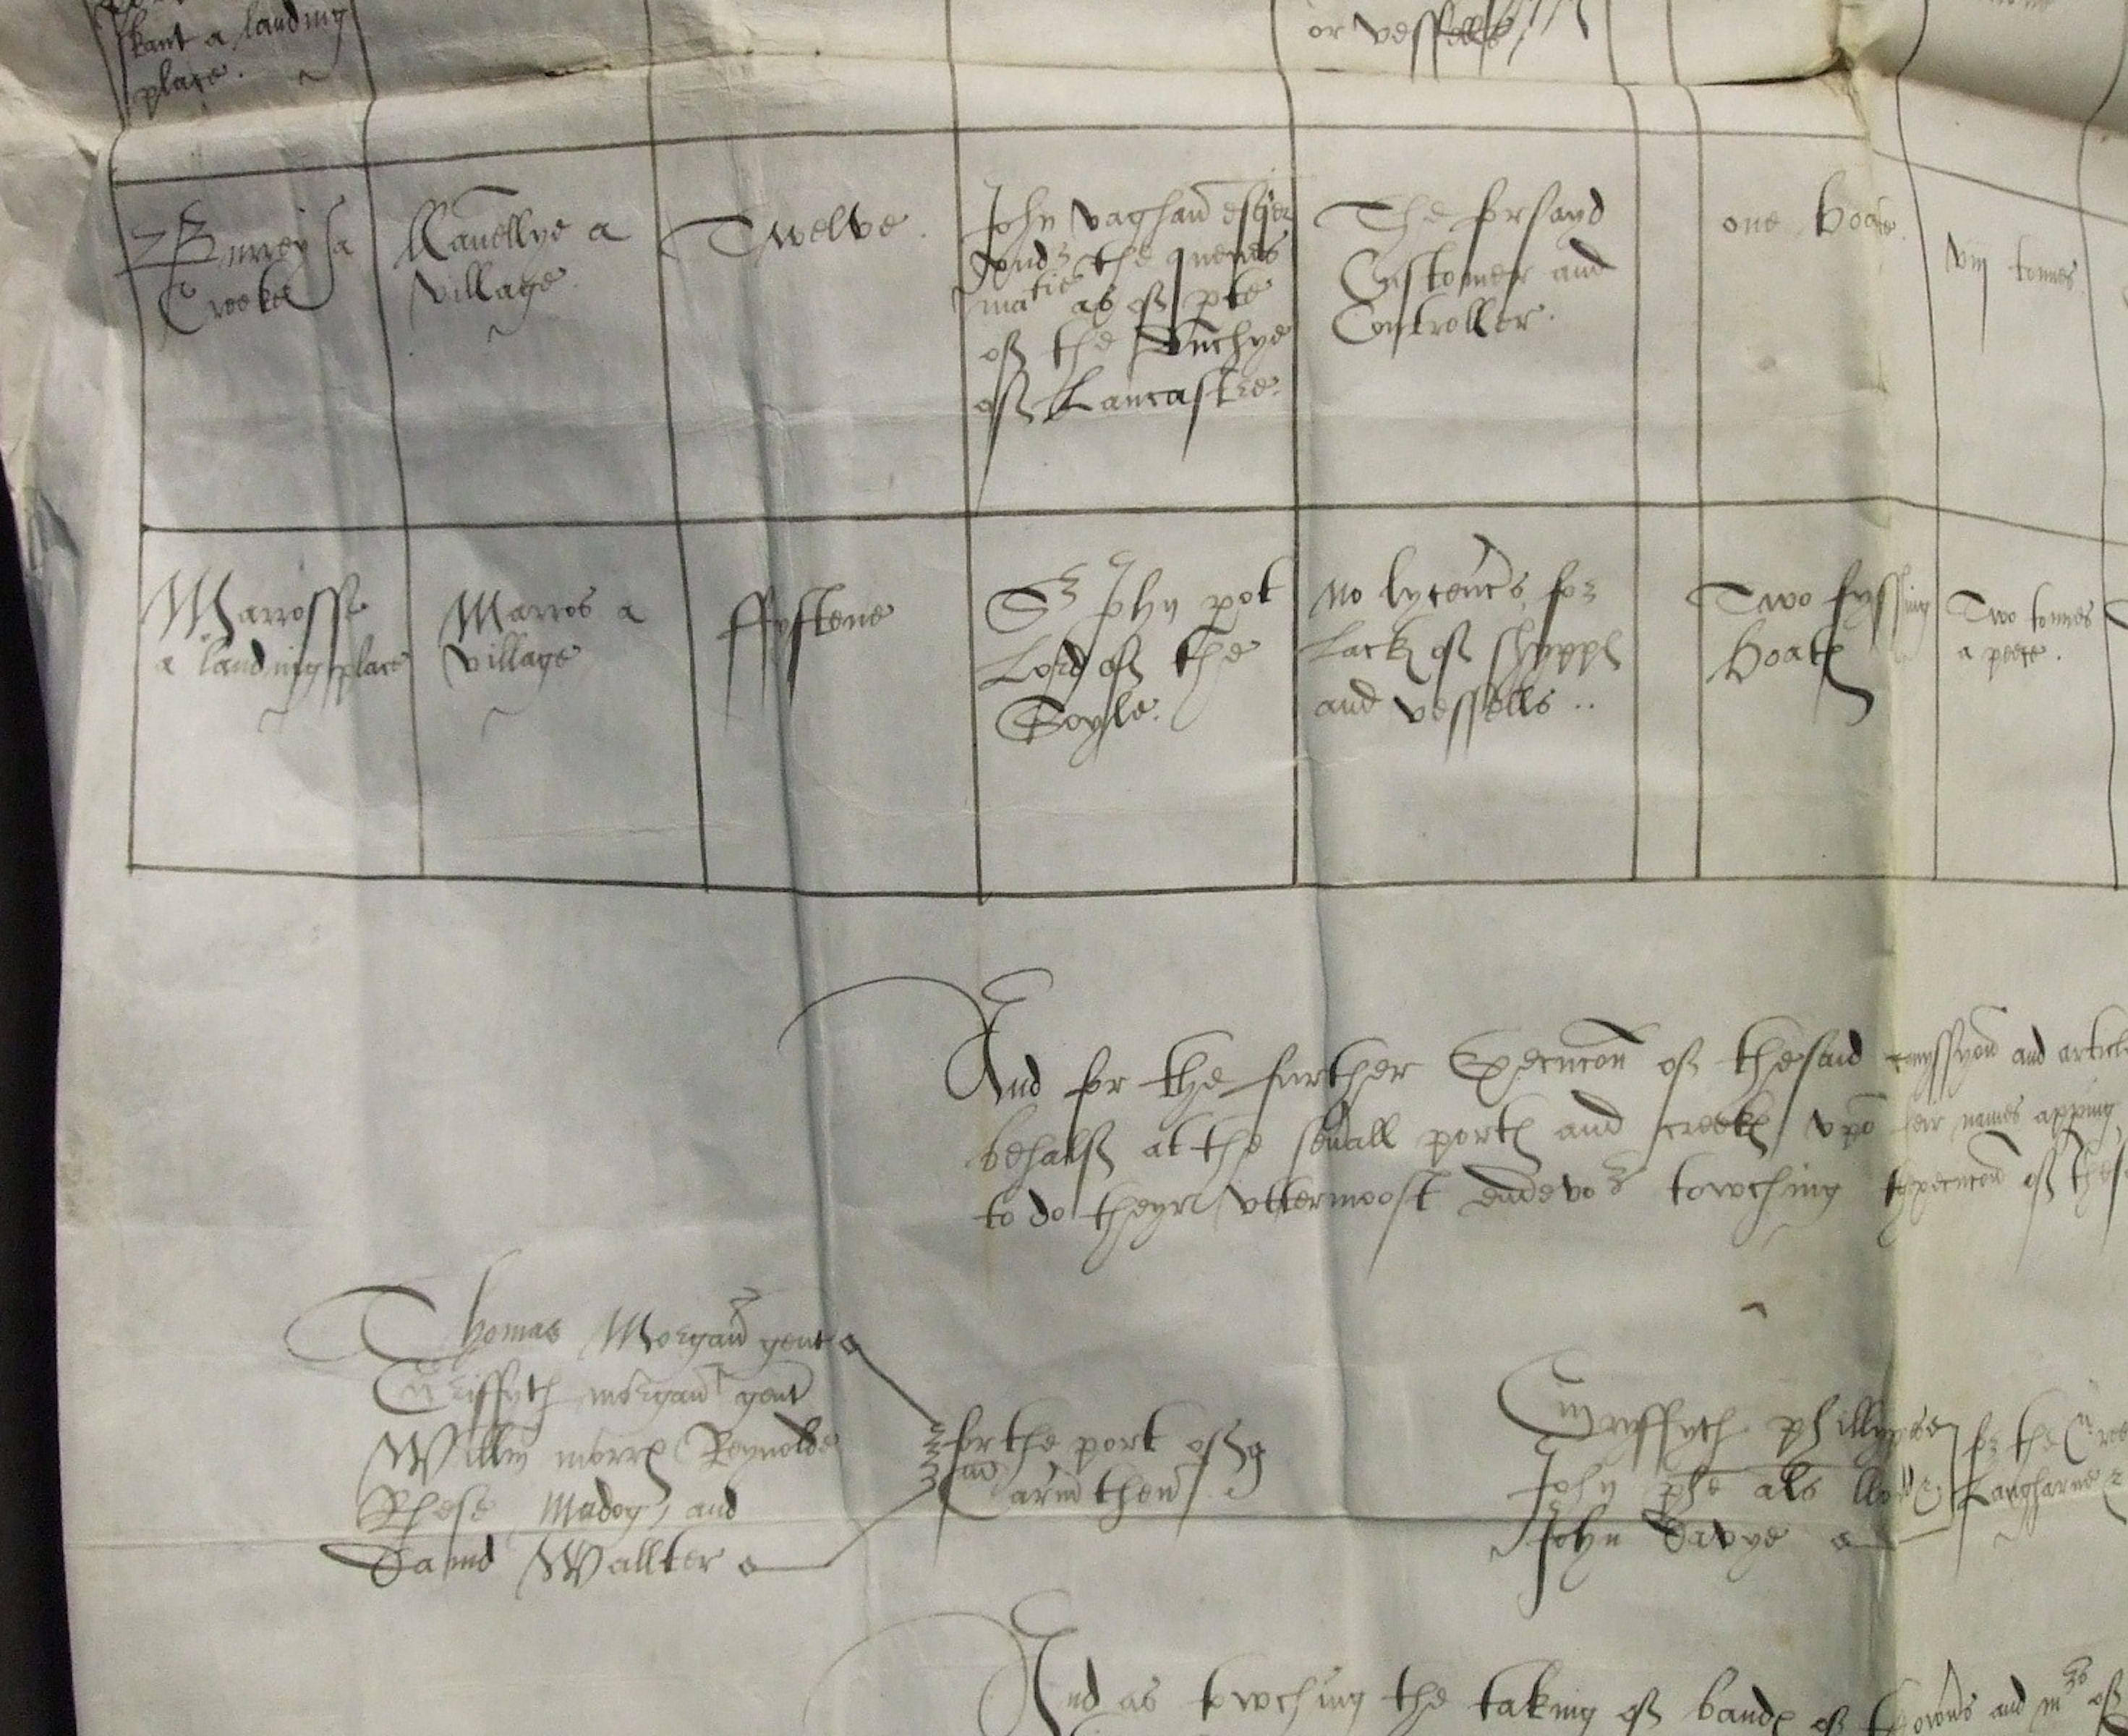 kant a landing
place.
or vessells
Burrey a
Creeke
llanellye a
village.
Twelve.
John vaghan esquier
und the quenes
matie as of pte
of the Duchye
of Lancastre.
The forsayd
Customer and
Controller.
one boate.
viij tonnes.
Marrosse
a landing place
Marros a
village
ffyftene
Sr John pot
Lord of the
Soyle.
No lycencs for
Lack of shypps
and vessells ..
Two fysshing
boats
Two tonnes
a peece.
And for the further Execucon of thesaid comyssyon and article
behalf at the seuall ports and creeks vpo their names apping
to do theyr vttermoost endevor towching thexecucon of thes
Thomas Morgan gent
Griffyth morgan gent
Willm morrs Reynolde
Rhese Madog, and
Dauid Wallter
for the port of
Carmthen
Gryffyth phillypps
John phe als llo
John Davye
for the Cree
Langharne
And as towching the taking of bands of thowns and mrs of